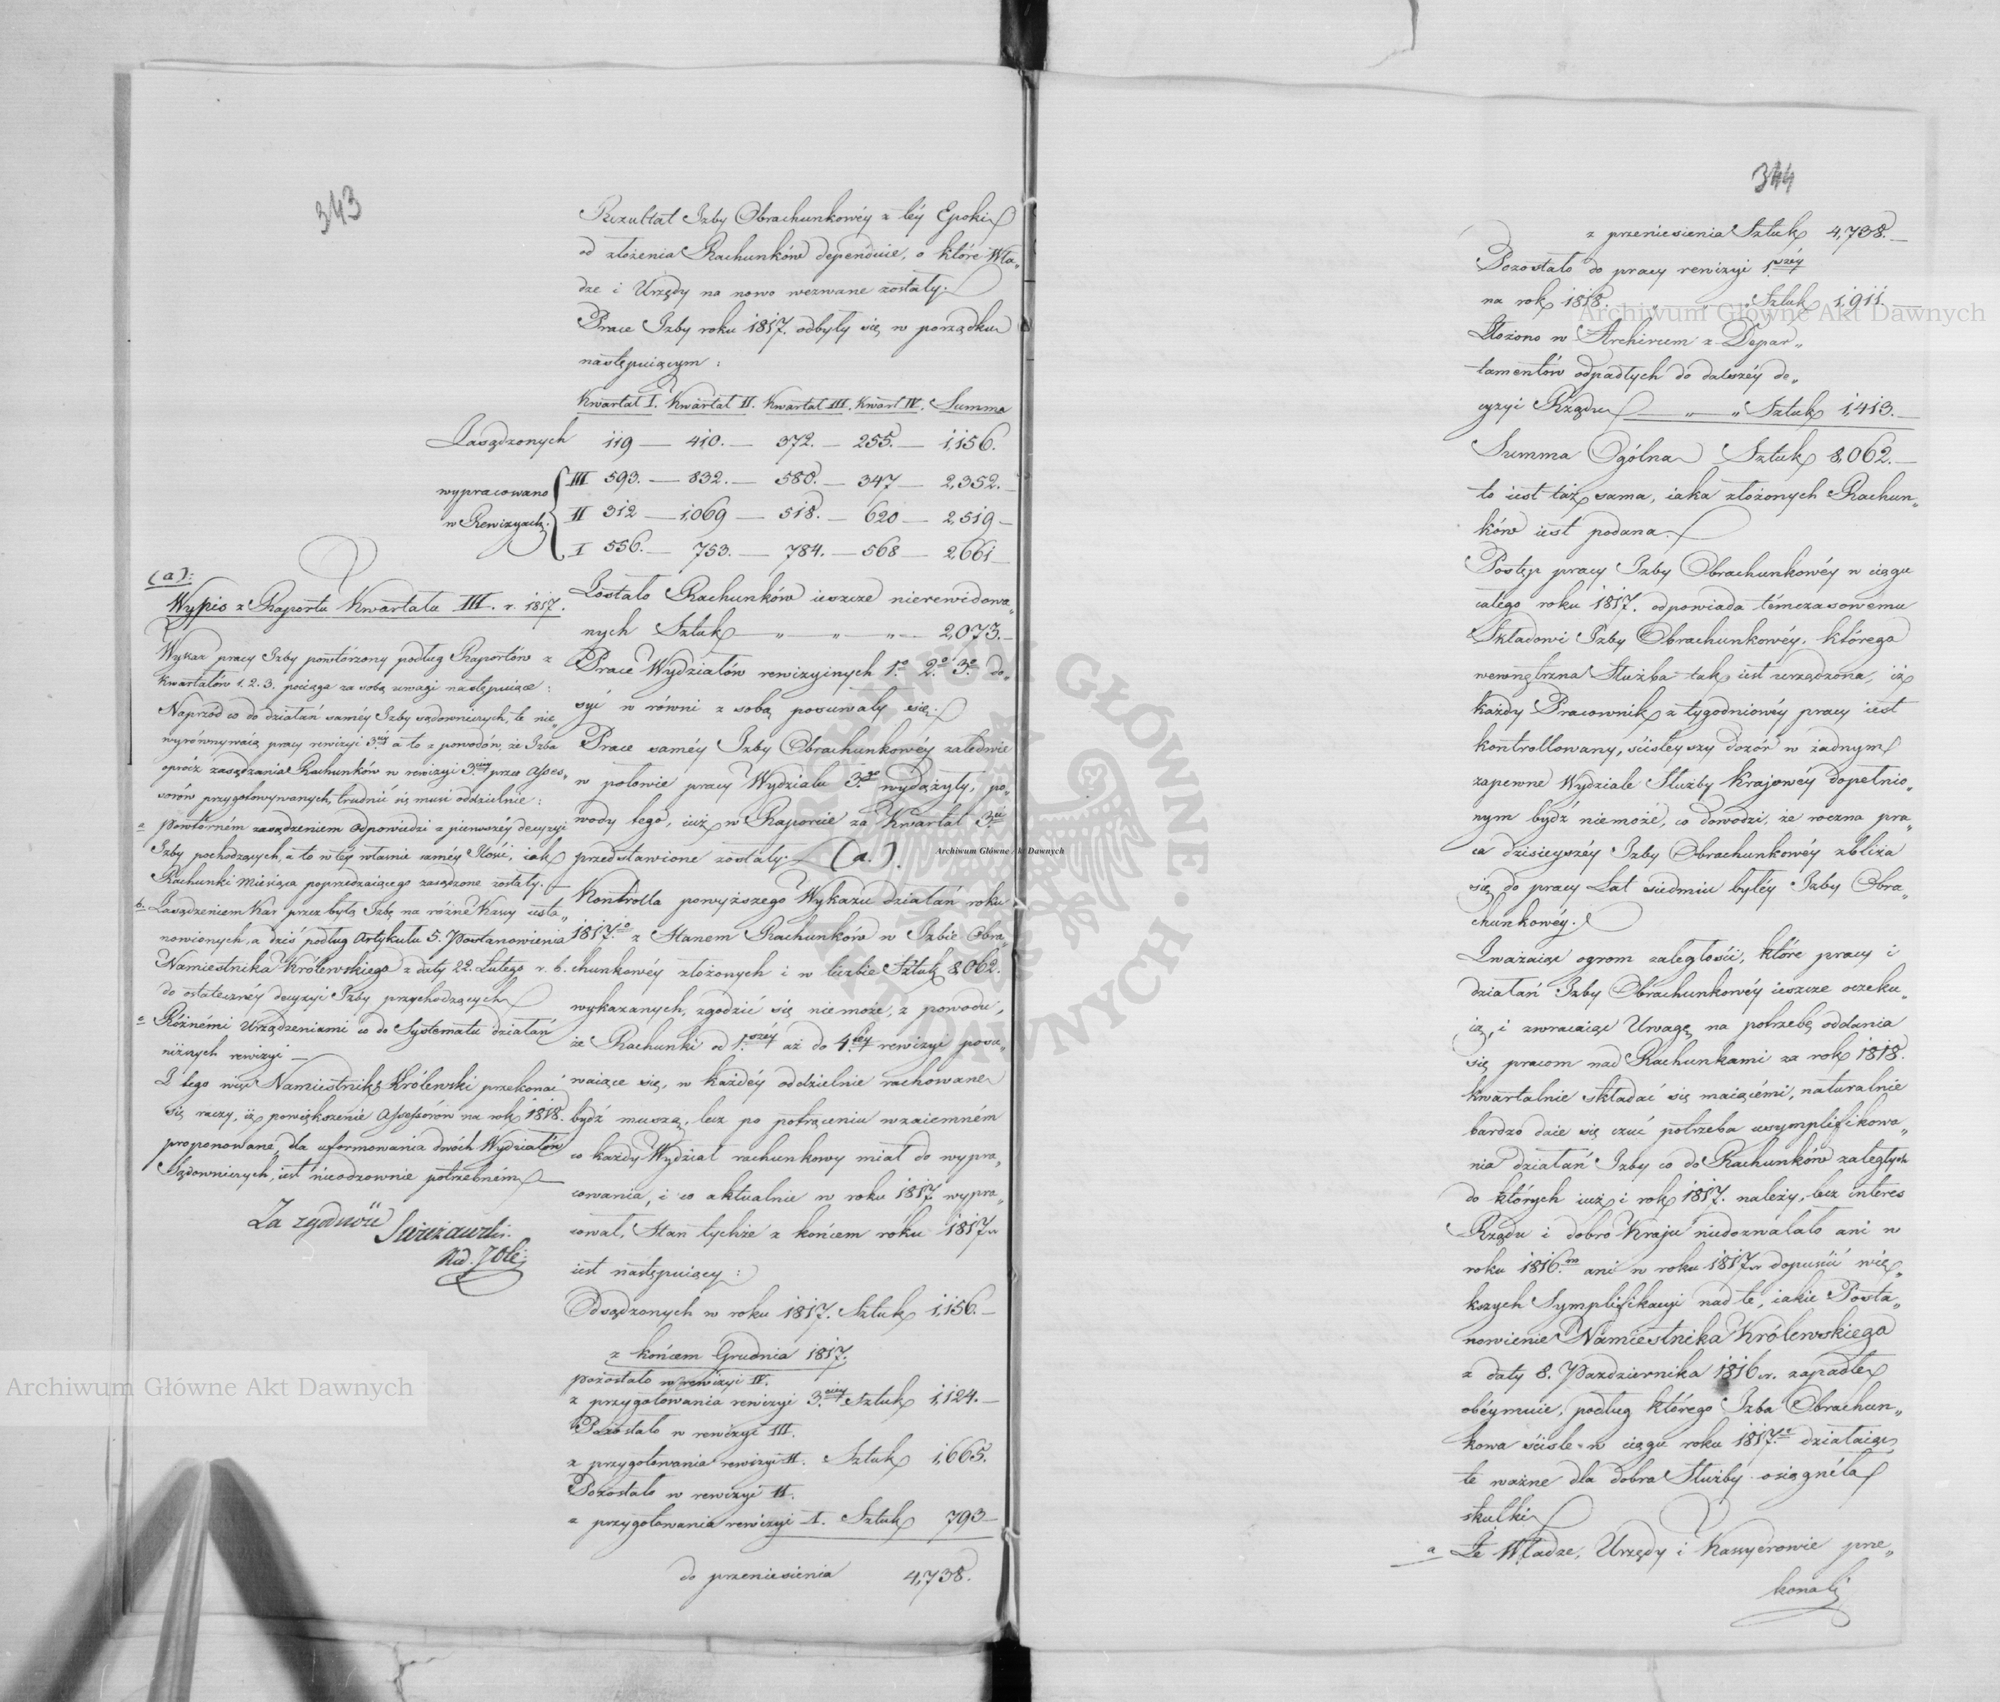 343
Rezultat Izby Obrachunkowéy z téy Epoki
od złożenia Rachunków dependuie, o które Wła„
dze i Urzędy na nowo wezwane zostały.
Prace Izby roku 1817. odbyły się w porządku
następuiącym:
Kwartał I. Kwartał II. Kwartał III. Kwart IV. Summa
Zasądzonych 119 — 410. — 372. — 255. — 1,156.
wypracowano
w Rewizyach.
III 593. — 832. — 580. — 347 — 2,352.
II 312 — 1,069 — 518. — 620 — 2,519 —
I 556. — 753. — 784. — 568 — 2,661 —
Zostało Rachunków ieszcze nierewidowa„
nych Sztuk — „ — „ — „ — 2,073. —
Prace Wydziałów rewizyinych 1º 2º 3º do„
syć w równi z sobą posuwały się.
Prace saméy Izby Obrachunkowéy zaledwie
w połowie pracy Wydziału 3.go wydążyły, po„
wody tego, iuż w Raporcie za Kwartał 3.ci
przedstawione zostały. (a.).
Kontrolla powyższego Wykazu działań roku
1817.º z Stanem Rachunków w Izbie Obra„
chunkowéy złożonych i w liczbie Sztuk 8,062.
wykazanych, zgodzić się niemoże, z powodu,
że Rachunki od 1.széy aż do 4.téy rewizyi posu„
waiące się, w każdéy oddzielnie rachowane
bydź muszą, lecz po potrąceniu wzaiemném
co każdy Wydział rachunkowy miał do wypra„
cowania, i co aktualnie w roku 1817 wypra„
cował, Stan tychże z końcem roku 1817 r
iest następuiący:
Odsądzonych w roku 1817. Sztuk 1,156. —
z końcem Grudnia 1817.
pozostało w rewizyi IV.
z przygotowania rewizyi 3.ciéy Sztuk 1,124. —
Pozostało w rewizyi III.
z przygotowania rewizyi II. Sztuk 1,665.
Pozostało w rewizyi II.
z przygotowania rewizyi I. Sztuk 793 —
do przeniesienia 4,738.
(a):
Wypis z Raportu Kwartału III. r. 1817.
Wykaz pracy Izby powtórzony podług Raportów z
Kwartałów 1. 2. 3. pociąga za sobą uwagi następuiące:
Naprzód co do działań saméy Izby sądowniczych, te nie„
wyrównywaią pracy rewizyi 3.ciéy a to z powodów, że Izba
oprócz zasądzania Rachunków w rewizyi 3.ciéy przez Asses„
sorów przygotowywanych, trudnić się musi oddzielnie:
a powtórném zasądzeniem odpowiedzi z pierwszéy decyzyi
Izby pochodzących, a to w téy własnie saméy Ilości, iak
Rachunki Miesiąca poprzedzaiącego zasądzone zostały. —
b. Zasądzeniem Kar przez byłą Izbę na różne Kassy usta„
nowionych, a dziś podług Artykułu 5. Postanowienia
Namiestnika Królewskiego z daty 22. Lutego r. b.
do ostatecznéy decyzyi Izby przychodzących
c Różnémi Urządzeniami co do Systematu działań
niższych rewizyi —
Z tego więc Namiestnik Królewski przekonać
się raczy, iż powiększenie Assessorów na rok 1818.
proponowane, dla uformowania dwóch Wydziałów
Sądowniczych, iest nieodzownie potrzebném —
Za zgodność
344
z przeniesienia Sztuk 4,738. —
Pozostało do pracy rewizyi 1.széy
na rok 1818. „ „ Sztuk 1,911. —
Złożono w Archiwum z Depar„
tamentów odpadłych do dalszéy de„
cyzyi Rządu — „ — „ Sztuk 1,413. —
Summa Ogólna Sztuk 8,062. —
to iest taż sama, iaka złożonych Rachun„
ków iest podana.
Postęp pracy Izby Obrachunkowéy w ciągu
całego roku 1817. odpowiada témczasowemu
Składowi Izby Obrachunkowéy, którego
wewnętrzna Służba tak iest urządzona, iż
każdy Pracownik z tygodniowéy pracy iest
kontrollowany, ściśleyszy dozór w żadnym
zapewne Wydziale Służby Kraiowéy dopełnio„
nym bydź niemoże, co dowodzi, że roczna pra„
ca dzisieyszéy Izby Obrachunkowéy zbliża
się do pracy Lat siedmiu byłéy Izby Obra„
chunkowéy.
Zważaiąc ogrom zaległości, które pracy i
działań Izby Obrachunkowéy ieszcze oczeku„
ią, i zwracaiąc Uwagę na potrzebę oddania
się pracom nad Rachunkami za rok 1818.
kwartalnie składać się maiącémi, naturalnie
bardzo daie się czuć potrzeba usymplifikowa„
nia działań Izby co do Rachunków zaległych
do których iuż i rok 1817. należy, lecz interes
Rządu i dobro Kraju niedozwalało ani w
roku 1816.m ani w roku 1817 r dopuścić wię„
kszych Symplifikacyi nad te, iakie Posta„
nowienie Namiestnika Królewskiego
z daty 8. Pazdziernika 1816 r. zapadłe
obéymuie, podług którego Izba Obrachun„
kowa ściśle w ciągu roku 1817.º działaiąc,
te ważne dla dobra Służby osiągnęła
skutki
a Że Władze, Urzędy i Kassyerowie prze„
konali
Archiwum Główne Akt Dawnych
Archiwum Główne Akt Dawnych
Archiwum Główne Akt Dawnych
ARCHIWUM GŁÓWNE AKT DAWNYCH